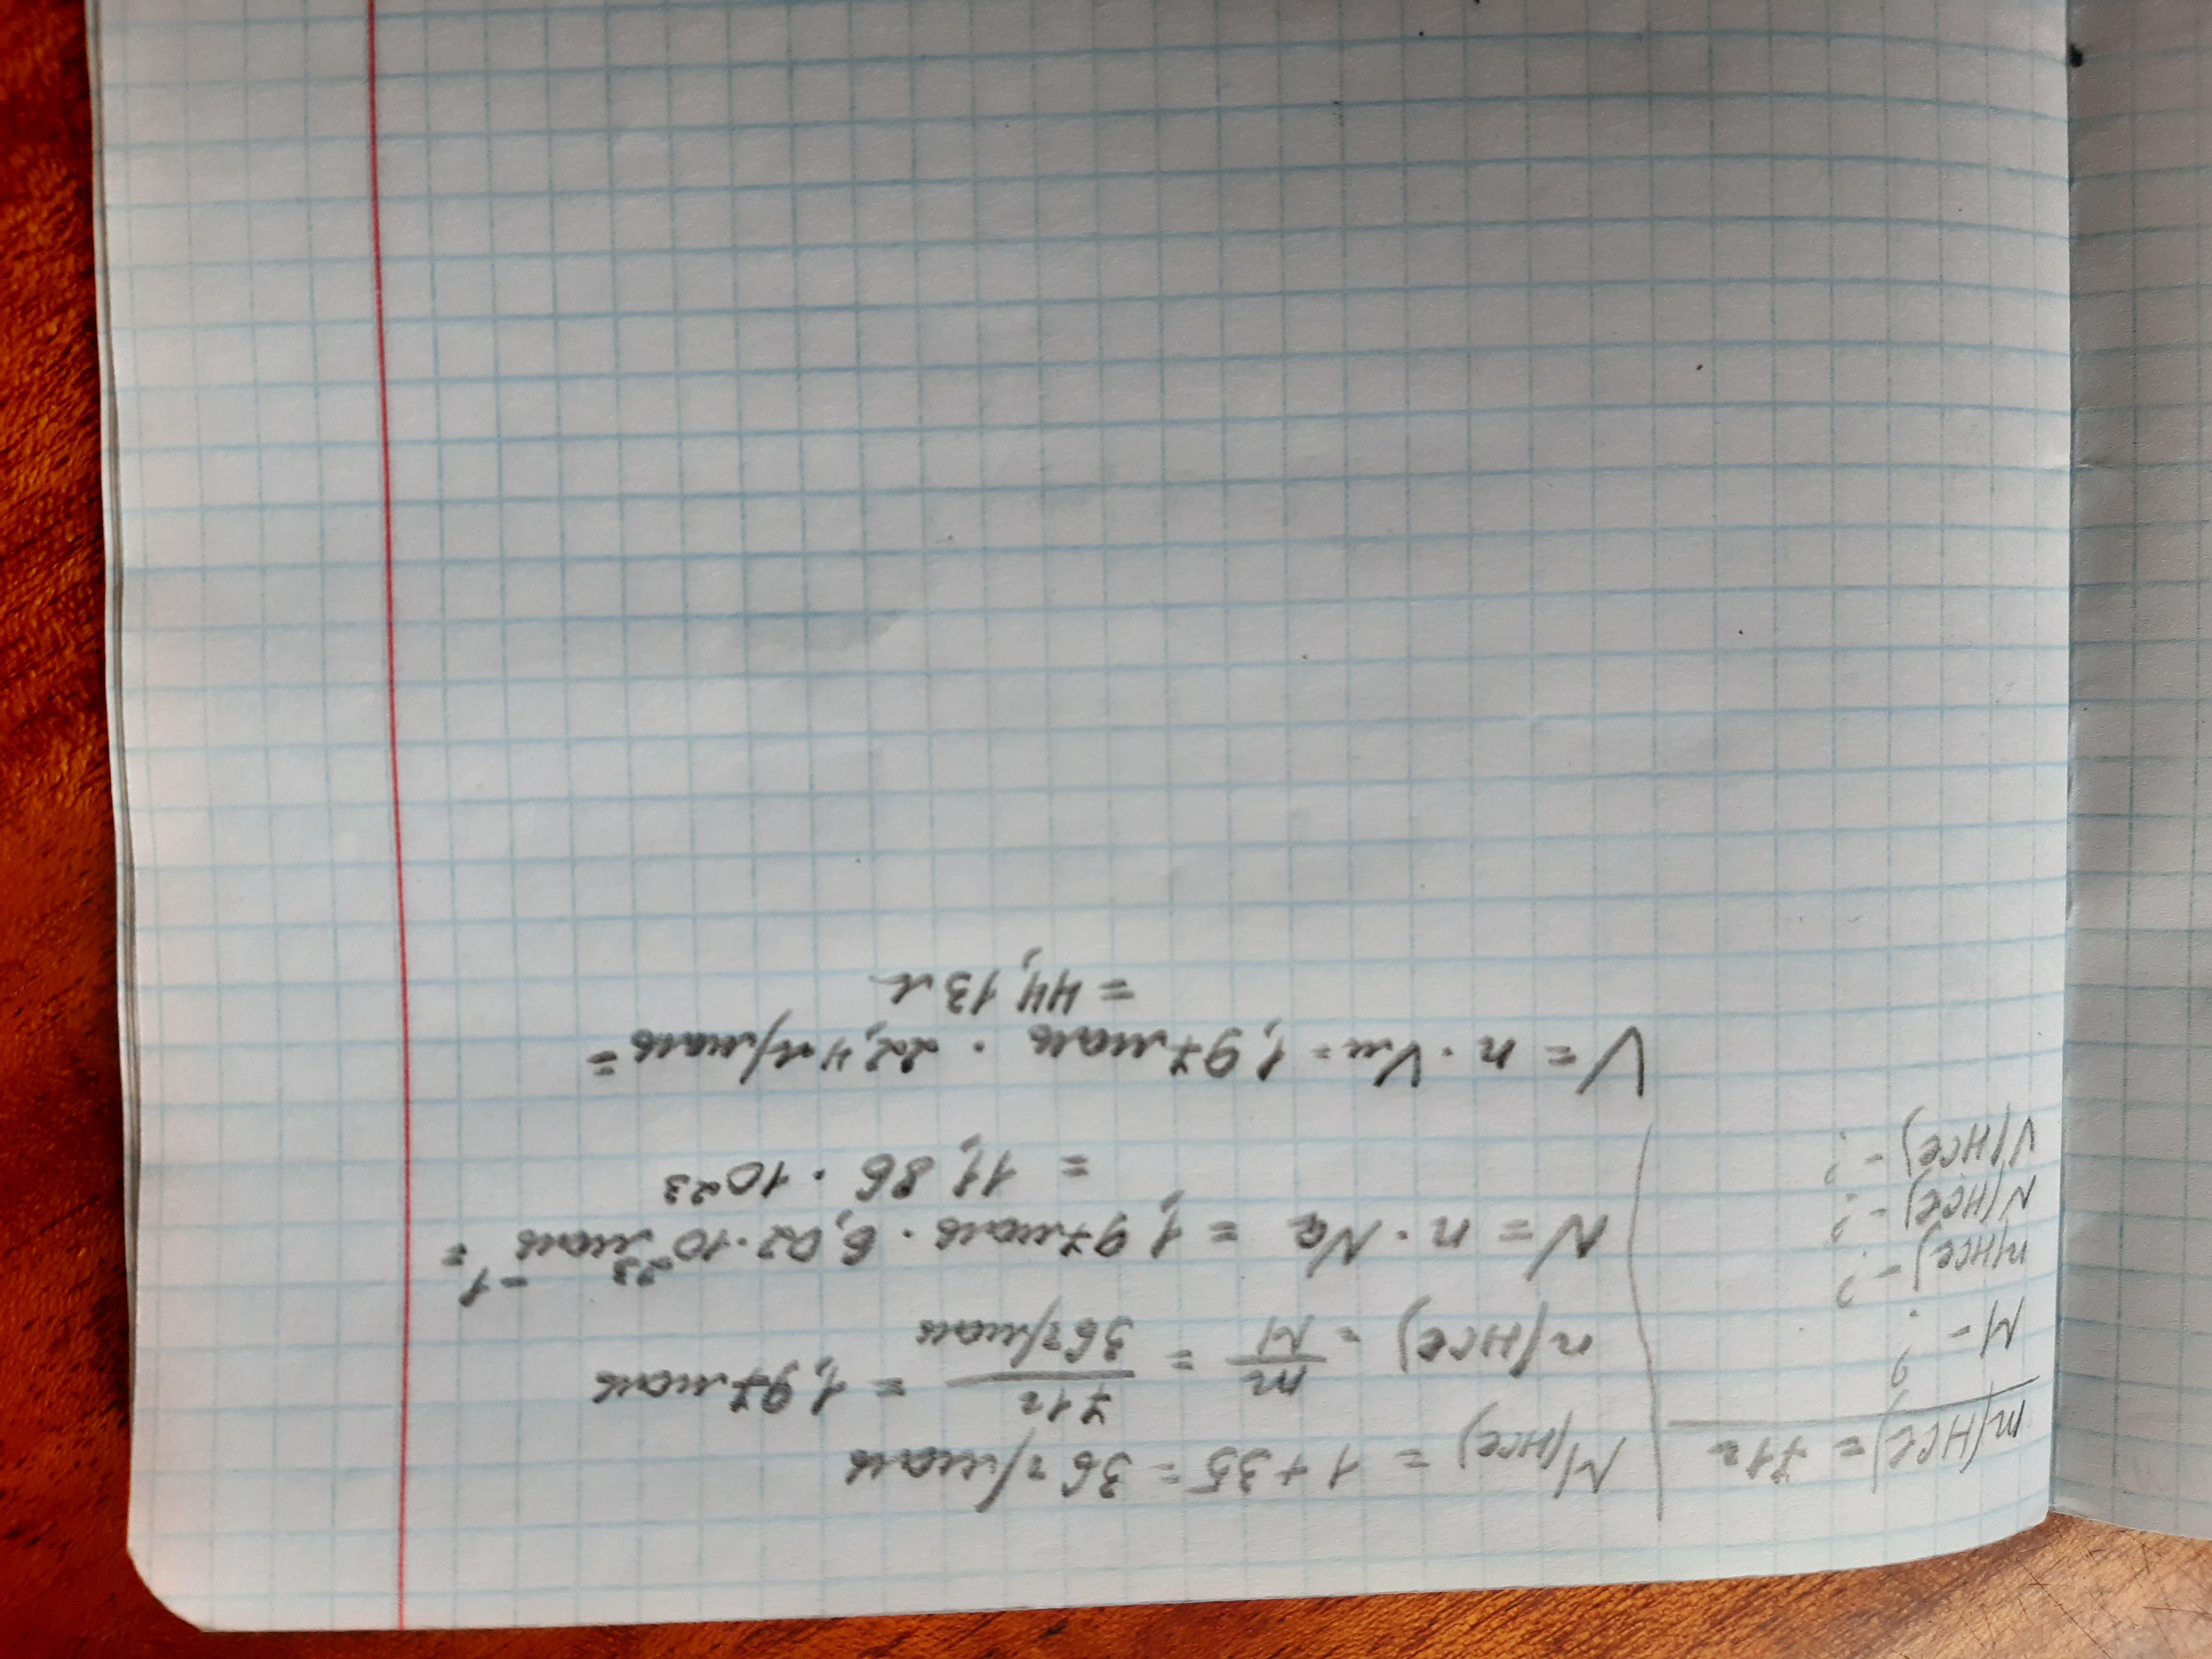 m(HCl) = 71г
M - ?
n(HCl) - ?
N(HCl) - ?
V(HCl) - ?
M(HCl) = 1 + 35 = 36 г/моль
n(HCl) = m/M = 71г/36г/моль = 1,97 моль
N = n · Na = 1,97 моль · 6,02 · 10²³ моль⁻¹ =
= 11,86 · 10²³
V = n · Vm = 1,97 моль · 22,4 л/моль =
= 44,13 л